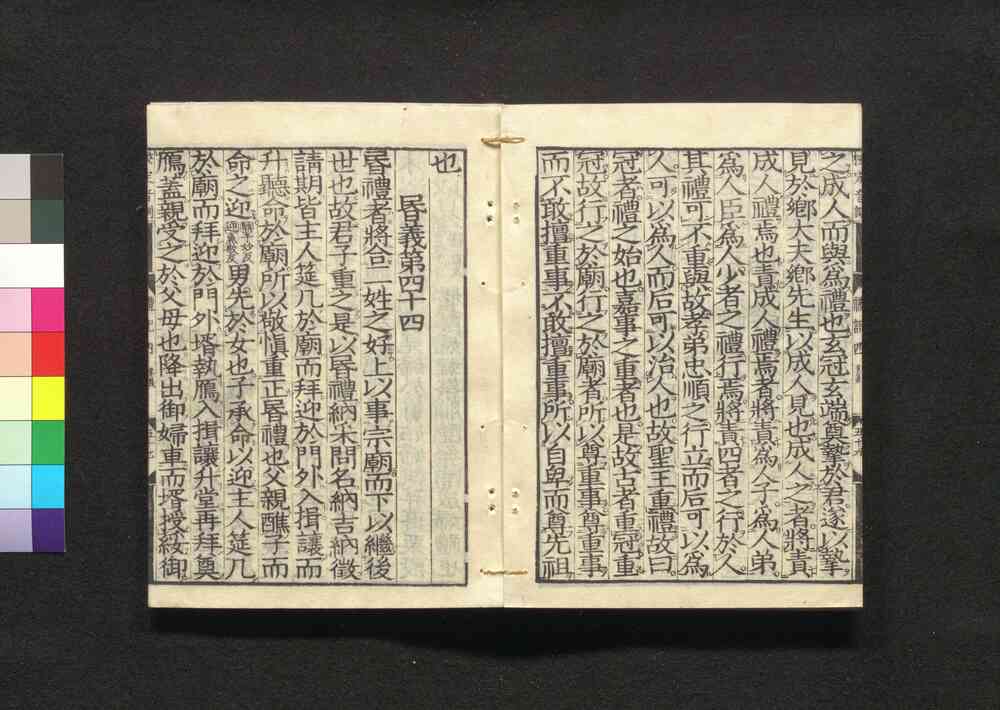 之成人而與爲禮也玄冠玄端奠摯於君遂以摯
見於鄉大夫鄉先生以成人見也成人之者將責
成人禮焉也責成人禮焉者將責爲人子爲人弟
爲人臣爲人少者之禮行焉將責四者之行於人
其禮可不重與故孝弟忠順之行立而后可以爲
人可以爲人而后可以治人也故聖王重禮故曰
冠者禮之始也嘉事之重者也是故古者重冠重
冠故行之於廟行之於廟者所以尊重事尊重事
而不敢擅重事不敢擅重事所以自卑而尊先祖
也
昬義第四十四
昬禮者將合二姓之好上以事宗廟而下以繼後
世也故君子重之是以昬禮納采問名納吉納徵
請期皆主人筵几於廟而拜迎於門外入揖讓而
升聽命於廟所以敬愼重正昬禮也父親醮子而
命之迎男先於女也子承命以迎主人筵几
於廟而拜迎於門外壻執鴈入揖讓升堂再拜奠
鴈蓋親受之於父母也降出御婦車而壻授綏御